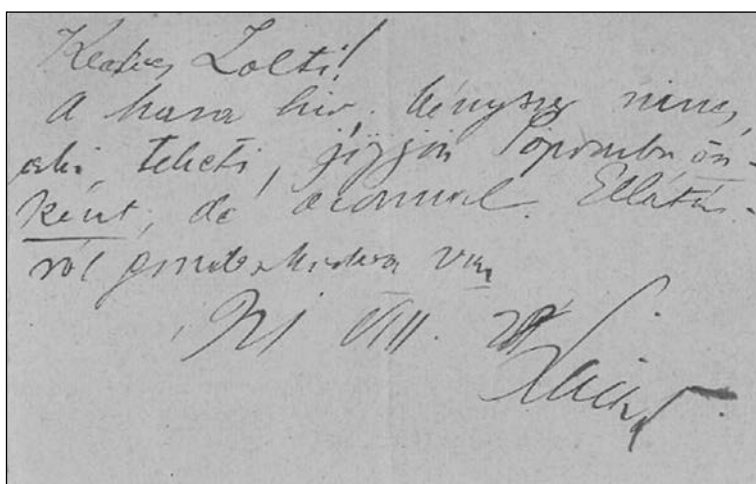 Kedves Zolti!
A haza hív, kényszer nincs,
aki teheti, jöjjön Sopronba ön-
ként, de azonnal. Ellátás-
ról gondoskodva van
VIII. 28